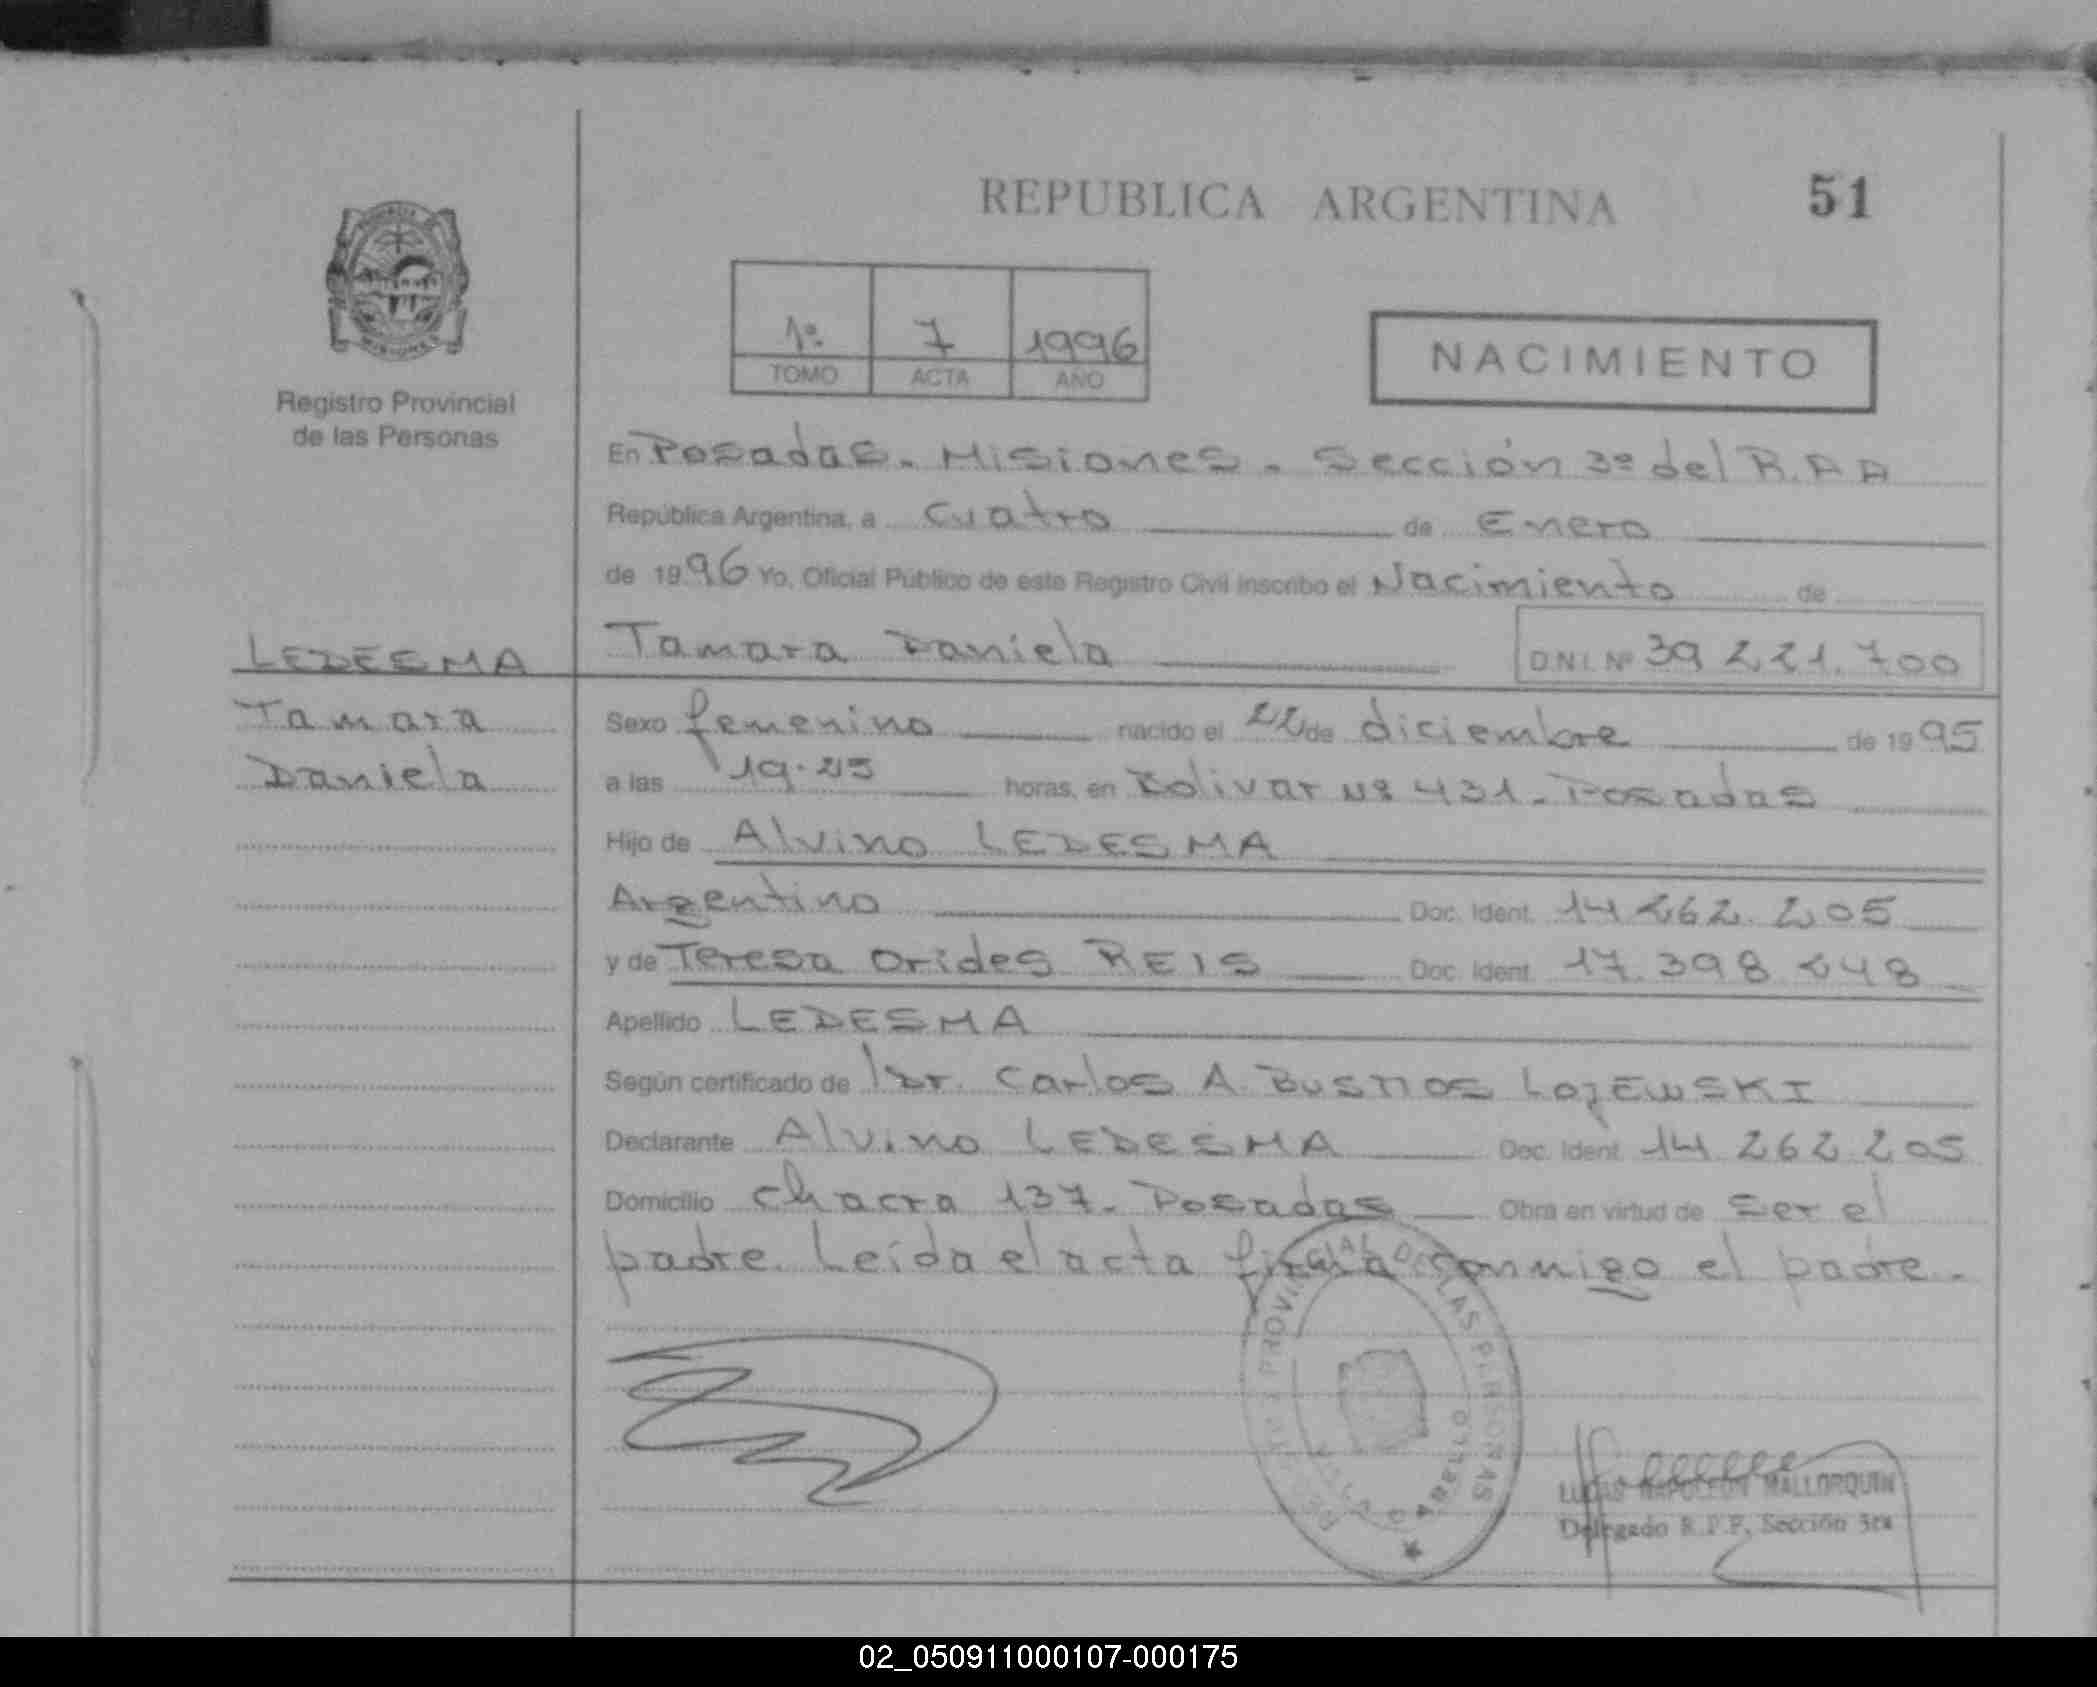 REPUBLICA ARGENTINA
51
1º 7 1996
TOMO ACTA AÑO
NACIMIENTO
MISIONES
Registro Provincial
de las Personas
En Posadas. Misiones. Sección 3º del R.P.P
República Argentina, a cuatro de Enero
de 1996 Yo, Oficial Público de este Registro Civil inscribo el Nacimiento de
LEDESMA
Tamara
Daniela
Tamara Daniela D.N.I. Nº 39 221.700
Sexo femenino nacido el 22 de diciembre de 1995
a las 19.25 horas, en Bolivar Nº 431. Posadas
Hijo de Alvino LEDESMA
Argentino Doc. Ident. 14 262.205
y de Teresa Orides REIS Doc. Ident. 17.398
Apellido LEDESMA
Según certificado de Dr. Carlos A. BUSTOS LOJEWSKI
Declarante Alvino LEDESMA Doc. Ident. 14 262 205
Domicilio chacra 137. Posadas Obra en virtud de ser el
padre. Leída el acta firma conmigo el padre.
PROVINCIAL DE LAS PERSONAS
VILLA CABELLO
LUCAS NAPOLEON MALLORQUIN
Delegado R.P.P. Sección 3ra
02_050911000107-000175